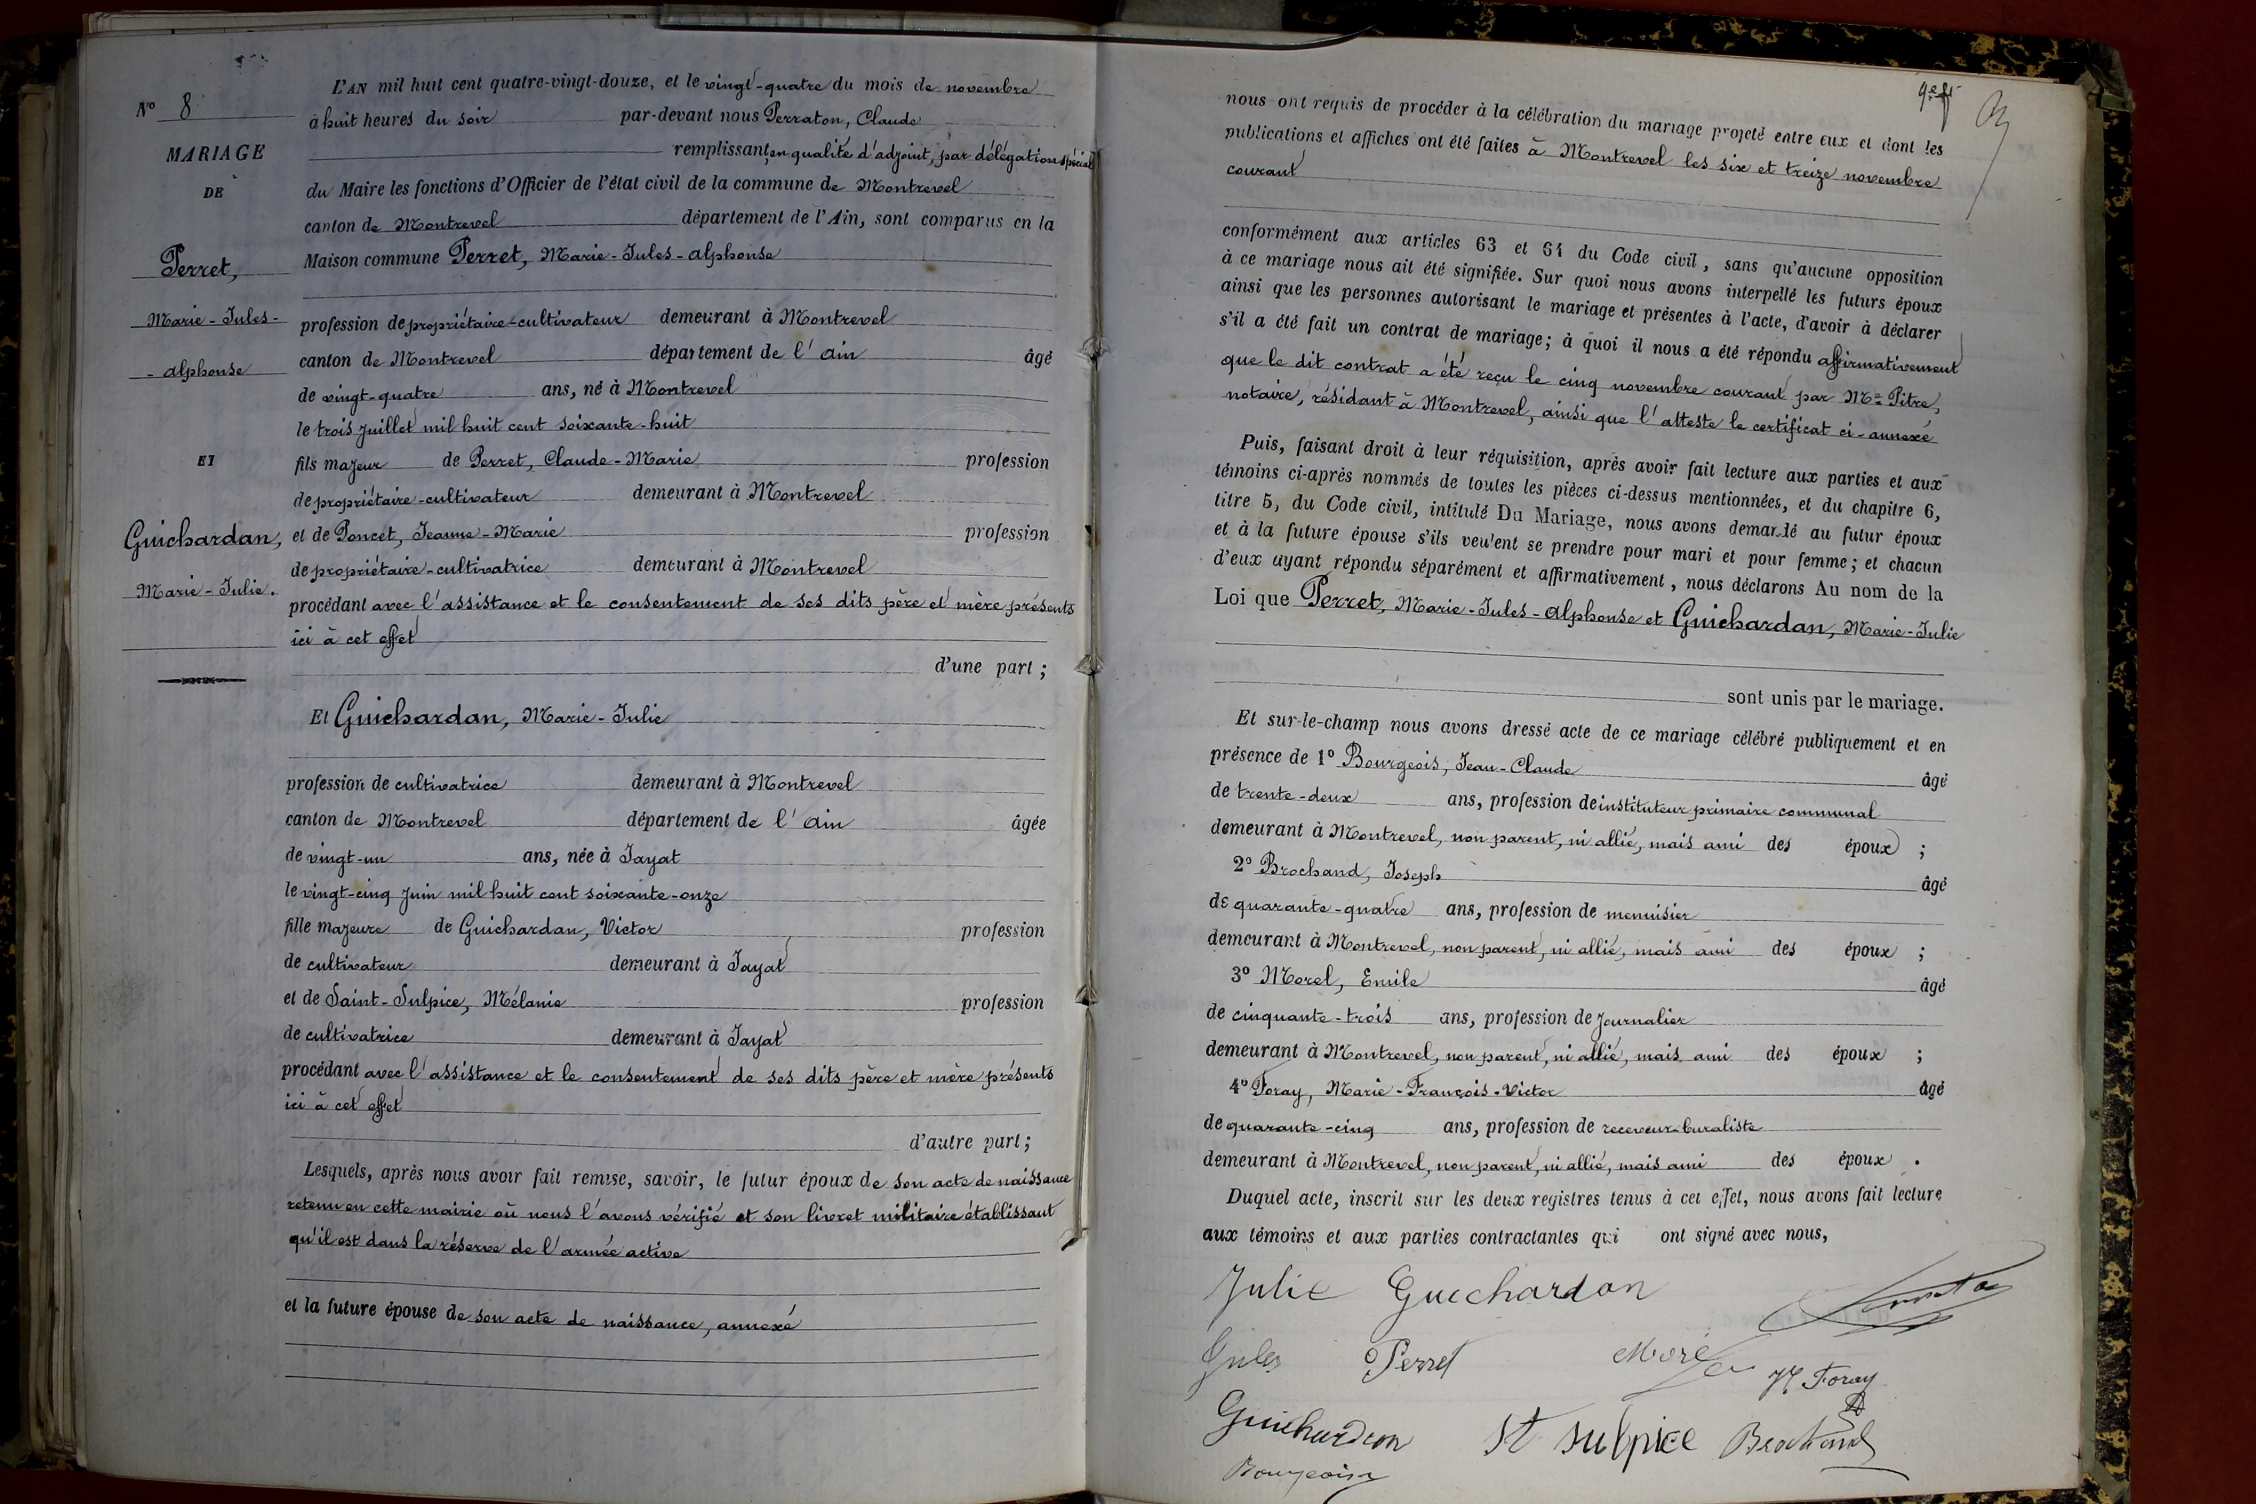 N° 8
MARIAGE
DE
Perret,
Marie-Jules-
-Alphonse
ET
Guichardan,
Marie-Julie.
L'AN mil huit cent quatre-vingt-douze, et le vingt-quatre du mois de novembre
à huit heures du soir par-devant nous Perraton, Claude
remplissant, en qualité d'adjoint, par délégation spéciale
du Maire les fonctions d'Officier de l'état civil de la commune de Montrevel
canton de Montrevel département de l'Ain, sont comparus en la
Maison commune Perret, Marie-Jules-Alphonse
profession de propriétaire-cultivateur demeurant à Montrevel
canton de Montrevel département de l'Ain âgé
de vingt-quatre ans, né à Montrevel
le trois Juillet mil huit cent soixante-huit
fils majeur de Perret, Claude-Marie profession
de propriétaire-cultivateur demeurant à Montrevel
et de Poncet, Jeanne-Marie profession
de propriétaire-cultivatrice demeurant à Montrevel
procédant avec l'assistance et le consentement de ses dits père et mère présents
ici à cet effet
d'une part ;
Et Guichardan, Marie-Julie
profession de cultivatrice demeurant à Montrevel
canton de Montrevel département de l'Ain âgée
de vingt-un ans, née à Jayat
le vingt-cinq Juin mil huit cent soixante-onze
fille majeure de Guichardan, Victor profession
de cultivateur demeurant à Jayat
et de Saint-Sulpice, Mélanie profession
de cultivatrice demeurant à Jayat
procédant avec l'assistance et le consentement de ses dits père et mère présents
ici à cet effet
d'autre part ;
Lesquels, après nous avoir fait remise, savoir, le futur époux de son acte de naissance
retenu en cette mairie où nous l'avons vérifié et son livret militaire établissant
qu'il est dans la réserve de l'armée active
et la future épouse de son acte de naissance, annexé
nous ont requis de procéder à la célébration du mariage projeté entre eux et dont les
publications et affiches ont été faites à Montrevel les six et treize novembre
courant
conformément aux articles 63 et 64 du Code civil, sans qu'aucune opposition
à ce mariage nous ait été signifiée. Sur quoi nous avons interpellé les futurs époux
ainsi que les personnes autorisant le mariage et présentes à l'acte, d'avoir à déclarer
s'il a été fait un contrat de mariage ; à quoi il nous a été répondu affirmativement
que le dit contrat a été reçu le cinq novembre courant par Me Pitre,
notaire, résidant à Montrevel, ainsi que l'atteste le certificat ci-annexé
Puis, faisant droit à leur réquisition, après avoir fait lecture aux parties et aux
témoins ci-après nommés de toutes les pièces ci-dessus mentionnées, et du chapitre 6,
titre 5, du Code civil, intitulé Du Mariage, nous avons demandé au futur époux
et à la future épouse s'ils veulent se prendre pour mari et pour femme ; et chacun
d'eux ayant répondu séparément et affirmativement, nous déclarons Au nom de la
Loi que Perret, Marie-Jules-Alphonse et Guichardan, Marie-Julie
sont unis par le mariage.
Et sur-le-champ nous avons dressé acte de ce mariage célébré publiquement et en
présence de 1° Bourgeois, Jean-Claude âgé
de trente-deux ans, profession de instituteur primaire communal
demeurant à Montrevel, non parent, ni allié, mais ami des époux ;
2° Brochand, Joseph âgé
de quarante-quatre ans, profession de menuisier
demeurant à Montrevel, non parent, ni allié, mais ami des époux ;
3° Morel, Emile âgé
de cinquante-trois ans, profession de Journalier
demeurant à Montrevel, non parent, ni allié, mais ami des époux ;
4° Foray, Marie-François-Victor âgé
de quarante-cinq ans, profession de receveur-buraliste
demeurant à Montrevel, non parent, ni allié, mais ami des époux.
Duquel acte, inscrit sur les deux registres tenus à cet effet, nous avons fait lecture
aux témoins et aux parties contractantes qui ont signé avec nous,
Julie Guichardan
Jules Perret Morel
Foray
Guichardan St Sulpice Brochand
Bourgeois